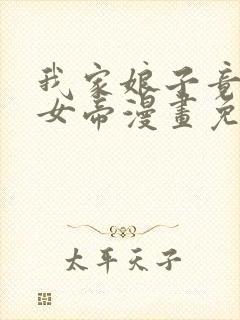 我家娘子竟
女帝漫畫免
太平天子